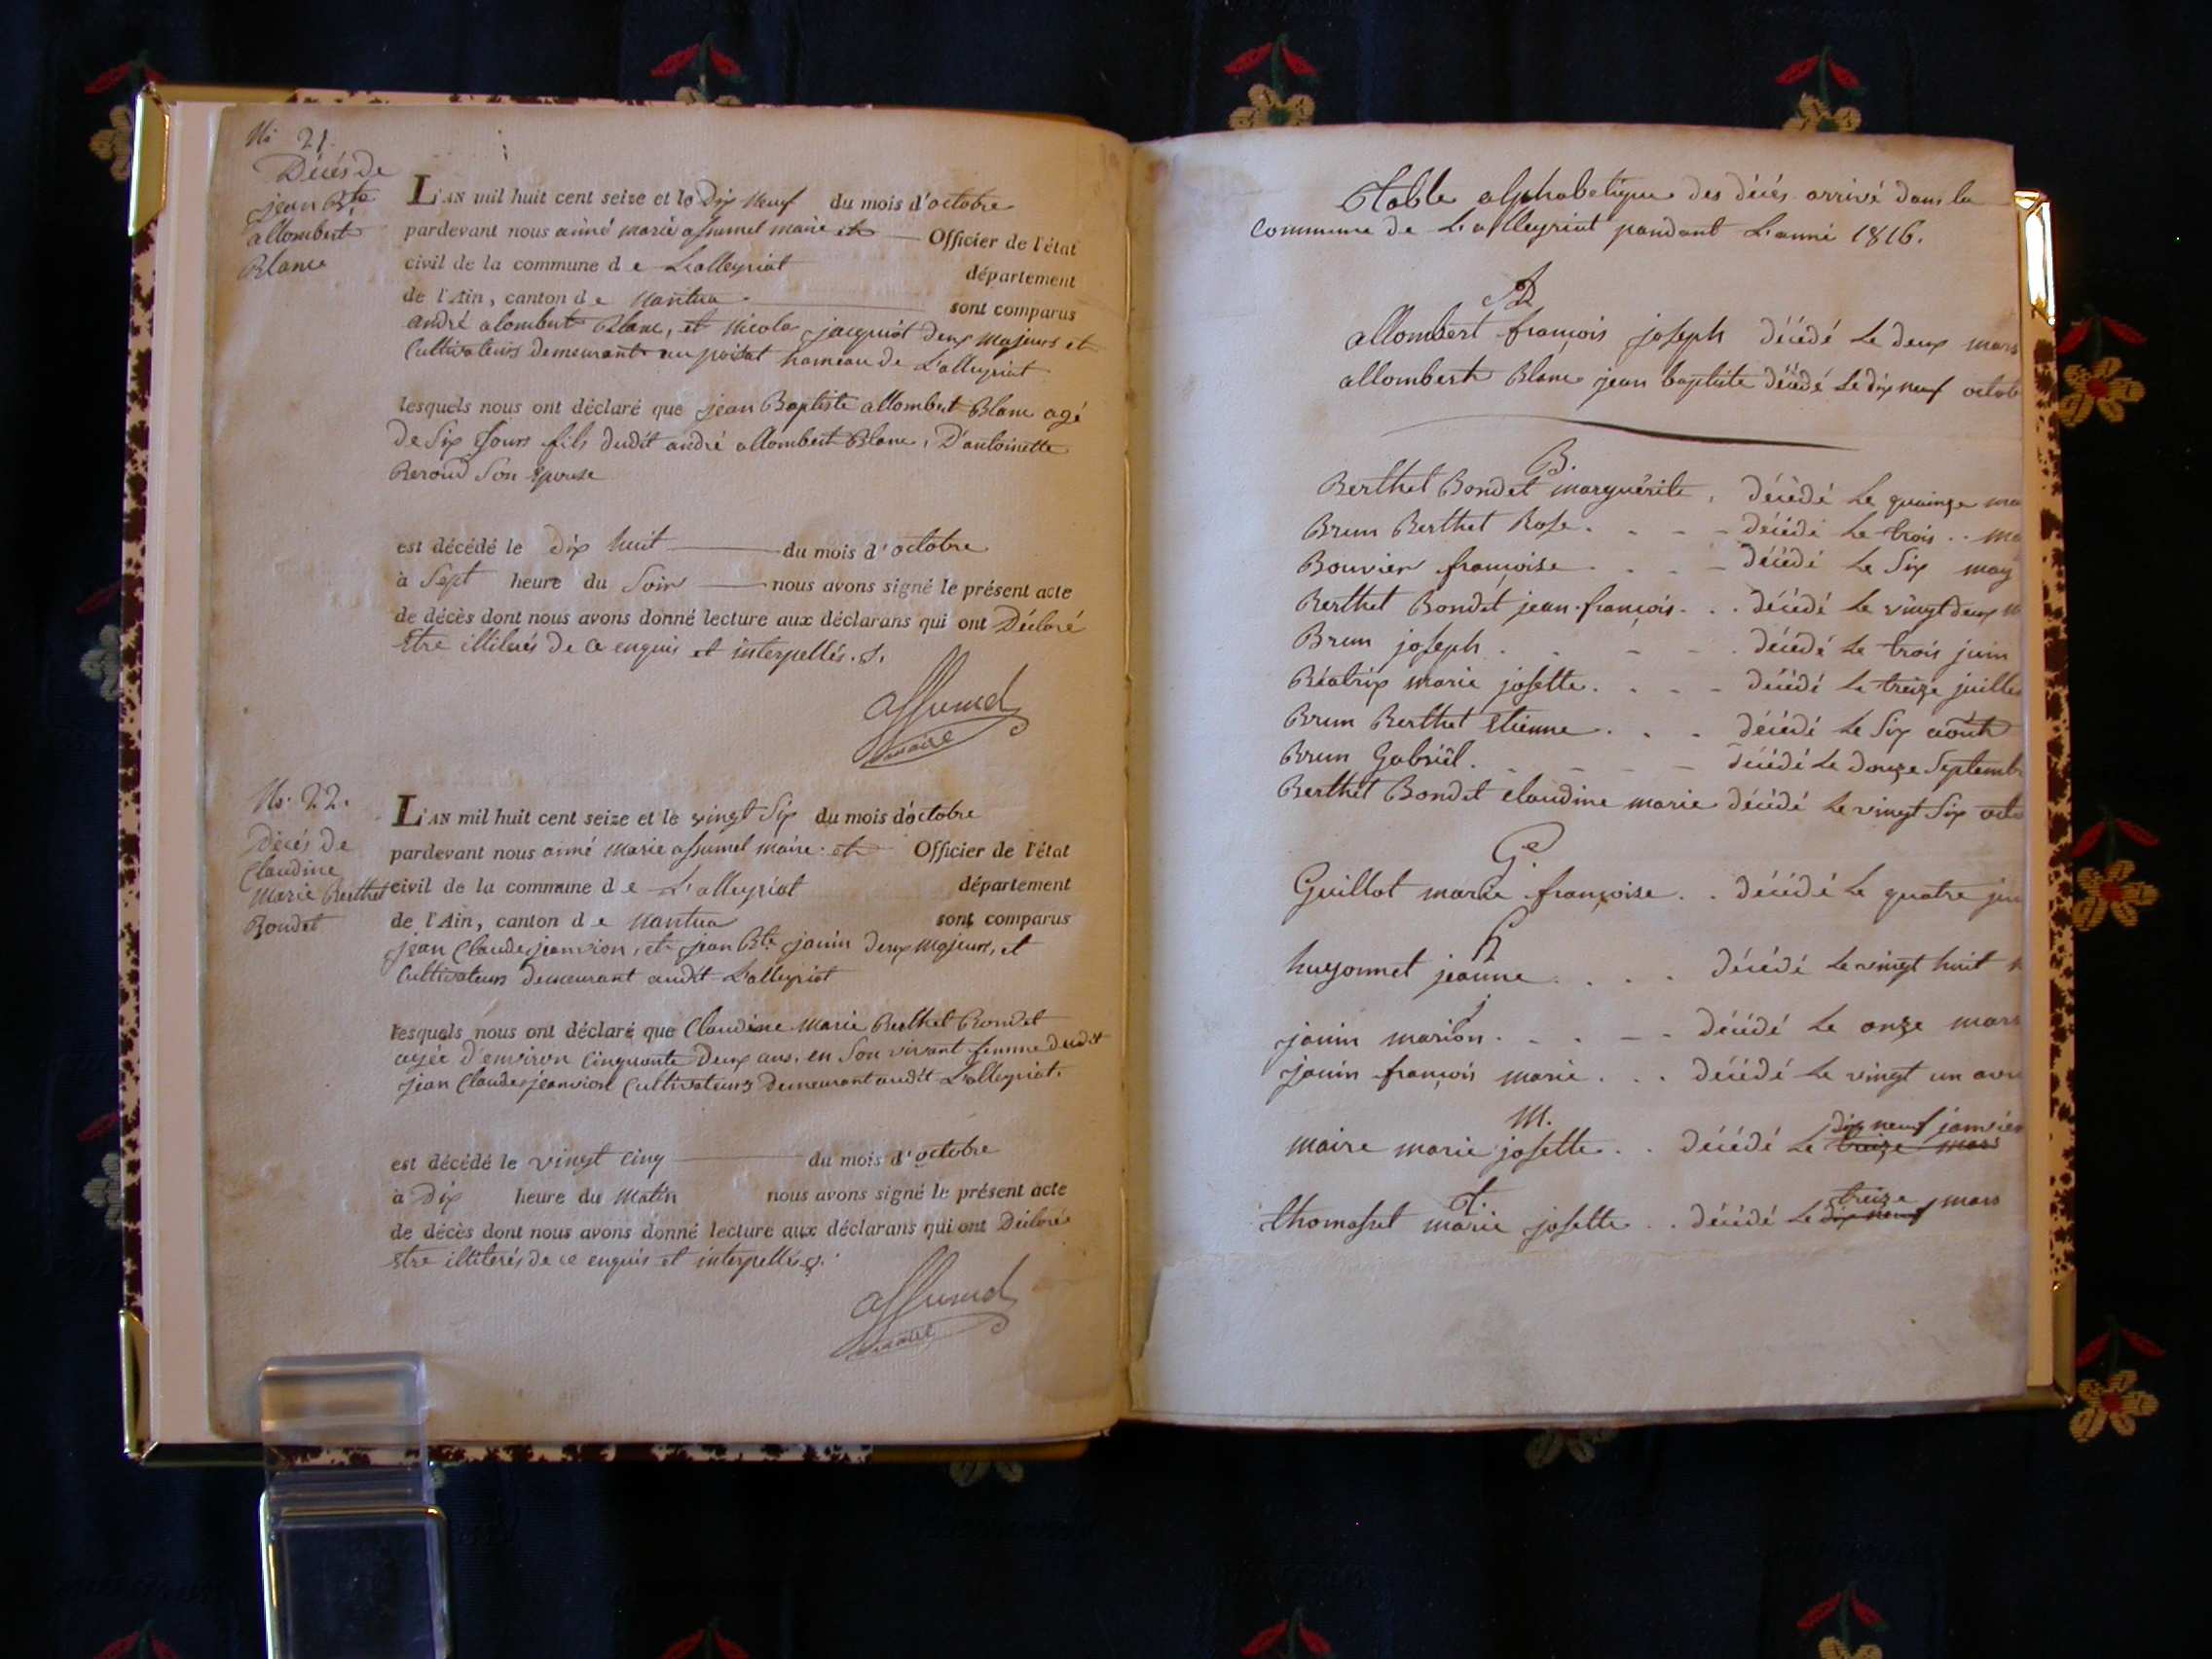 No 21.
Décés de
jean Bte
allombert
Blanc
L'AN mil huit cent seize et le Dix Neuf du mois d'octobre
pardevant nous aimé marie assumel maire et Officier de l'état
civil de la commune de Lalleyriat département
de l'Ain, canton de Nantua sont comparus
andré alombert Blanc, et Nicolas jacquiot deux majeurs et
Cultivateurs demeurant au poizat hameau de L'alleyriat
lesquels nous ont déclaré que jean Baptiste allombert Blanc agé
De Six Jours fils dudit andré allombert Blanc, D'antoinette
Beroud Son Epouse
est décédé le dix huit du mois d'octobre
à Sept heure du Soir nous avons signé le présent acte
de décès dont nous avons donné lecture aux déclarans qui ont Déclaré
Etre de ce enquis et interpellés.
assumel
maire
No. 22.
Décés de
Claudine
Marie Berthet
Bondet
L'AN mil huit cent seize et le vingt Six du mois d'octobre
pardevant nous aimé marie assumel maire et Officier de l'état
civil de la commune de L'alleyriat département
de l'Ain, canton de Nantua sont comparus
jean Claude jeanvion, et jean Bte janin deux majeurs, et
Cultivateurs demeurant audit L'alleyriat
lesquels nous ont déclaré que Claudine Marie Berthet Bondet
agée d'environ Cinquante Deux ans, en Son vivant femme dudit
jean Claude jeanvion Cultivateurs Demeurant audit L'alleyriat.
est décédé le vingt cinq du mois d'octobre
à Dix heure du Matin nous avons signé le présent acte
de décès dont nous avons donné lecture aux déclarans qui ont Déclaré
Etre illiterés de ce enquis et interpellés.
assumel
maire
Table alphabetique des décés arrivé dans la
Commune de Lalleyriat pandant L'anné 1816.
A
allombert françois joseph décédé Le deux mars
allombert Blanc jean baptiste décédé Le dix neuf octob
B.
Berthet Bondet marguérite, décédé Le quainze ma
Brun Berthet Rose. . . - décédé Le trois .. ma
Bouvier françoise . . . - décédé Le Six may
Berthet Bondet jean-françois. . . décédé Le vingt deux
Brun joseph . . - - . décédé Le trois juin
Béatrix marie josette. . . - décédé Le treize juille
Brun Berthet Etienne . . . décédé Le Six août
Brun Gabriël. - - - - décédé Le Douze Septemb
Berthet Bondet Claudine marie décédé Le vingt Six octo
G.
Guillot marie françoise . . décédé Le quatre
h
hugonnet jeanne . . . . décédé Le vingt huit
j
janin marion. . . - - décédé Le onze mars
janin françois marie . . . décédé Le vingt un avr
M.
dix neuf janvier
maire marie josette . . décédé Le treize mars
T.
treize
thomasset marie josette . . décédé Le dix neuf mars